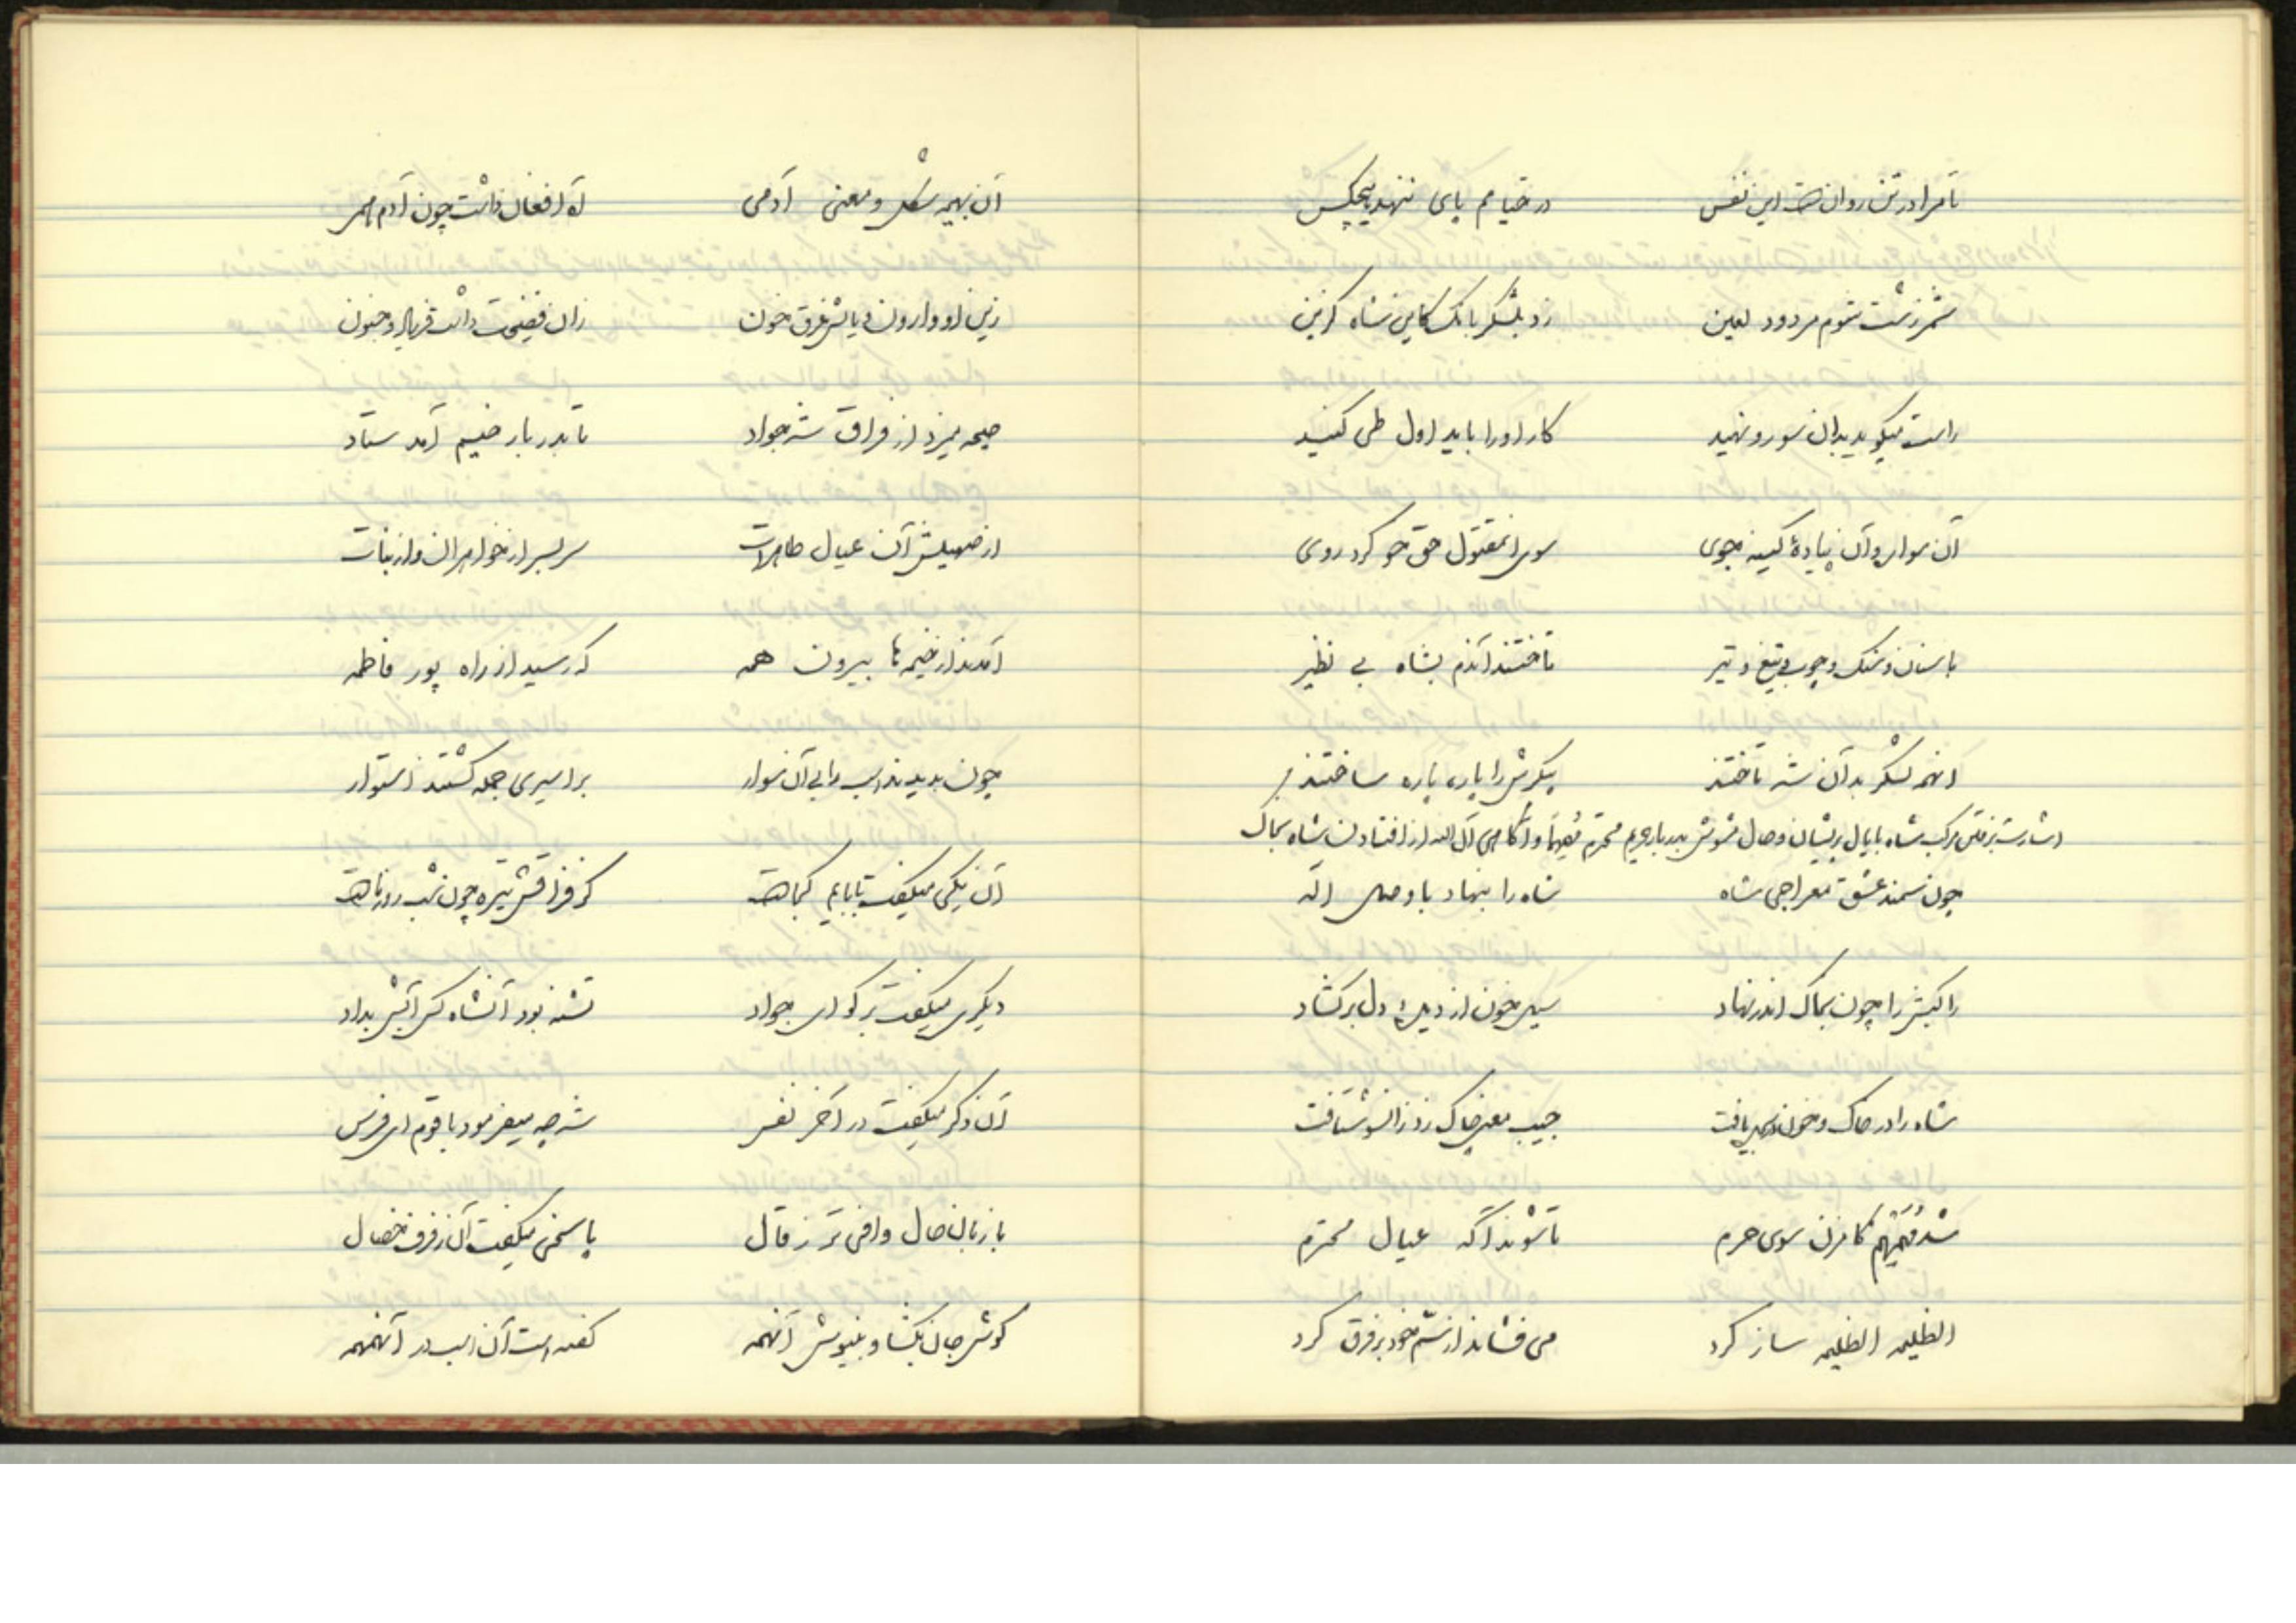 تا مرا در تن روان هست این نفس در خیامم پای ننهد هیچکس
شمر زشت شوم مردود لعین زد بلشکر بانک کاین شاه گزین
راست میگوید بدان سو رو نهید کار او را باید اول طی کنید
آن سوار و آن پیادهٔ کینه جوی سوی آنمقتول حق خو کرد روی
با سنان و سنک و چوب و تیغ و تیر تاختند آندم بشاه بی نظیر
آنهمه لشکر بدآن شه تاختند پیکرش را پاره پاره ساختند
اشارت برفتن مرکب شاه با یال پریشان و حال مشوش بدربار حریم محترم و آگاهی آل الله از افتادن شاه بخاک
چون سمند عشق معراجی شاه شاه را بنهاد با وصل اله
راکبش را چون بخاک اندر نهاد سیل خون از دیدهٔ دل برگشاد
شاه را در خاک و خون جیب معنی چاک زد زانسو شتافت
شد گامزن سوی حرم تا شوند آگه عیال محترم
الظلیمه الظلیمه ساز کرد می فشاند از سم خود بر فرق گرد
آن بهیمه شکل و معنی آدمی آه و افغان داشت چون آدم همی
زین او وارون و یالش غرق خون زان فضیحت داشت فریاد و جنون
صیحه میزد از فراق شه جواد تا بدربار خیم آمد ستاد
از صهیلش آن عیال طاهرات سربسر از خواهران و از بنات
آمدند از خیمه ها بیرون همه که رسید از راه پور فاطمه
چون بدیدند اسب را بی آن سوار بر اسیری جمله گشتند استوار
آن یکی میگفت بابایم کجاست کز فراقش تیره چون شب روز ماست
دیگری میگفت برگو ای جواد تشنه بود آنشاه کس آبش بداد
آن دگر میگفت در آخر نفس شه چه میفرمود با قوم ای فرس
با زبان حال وافی تر ز قال پاسخی میگفت آن رفرف خصال
گوش جان بگشا و بنیوش آنهمه گفته است آن اسب در آنهمهمه